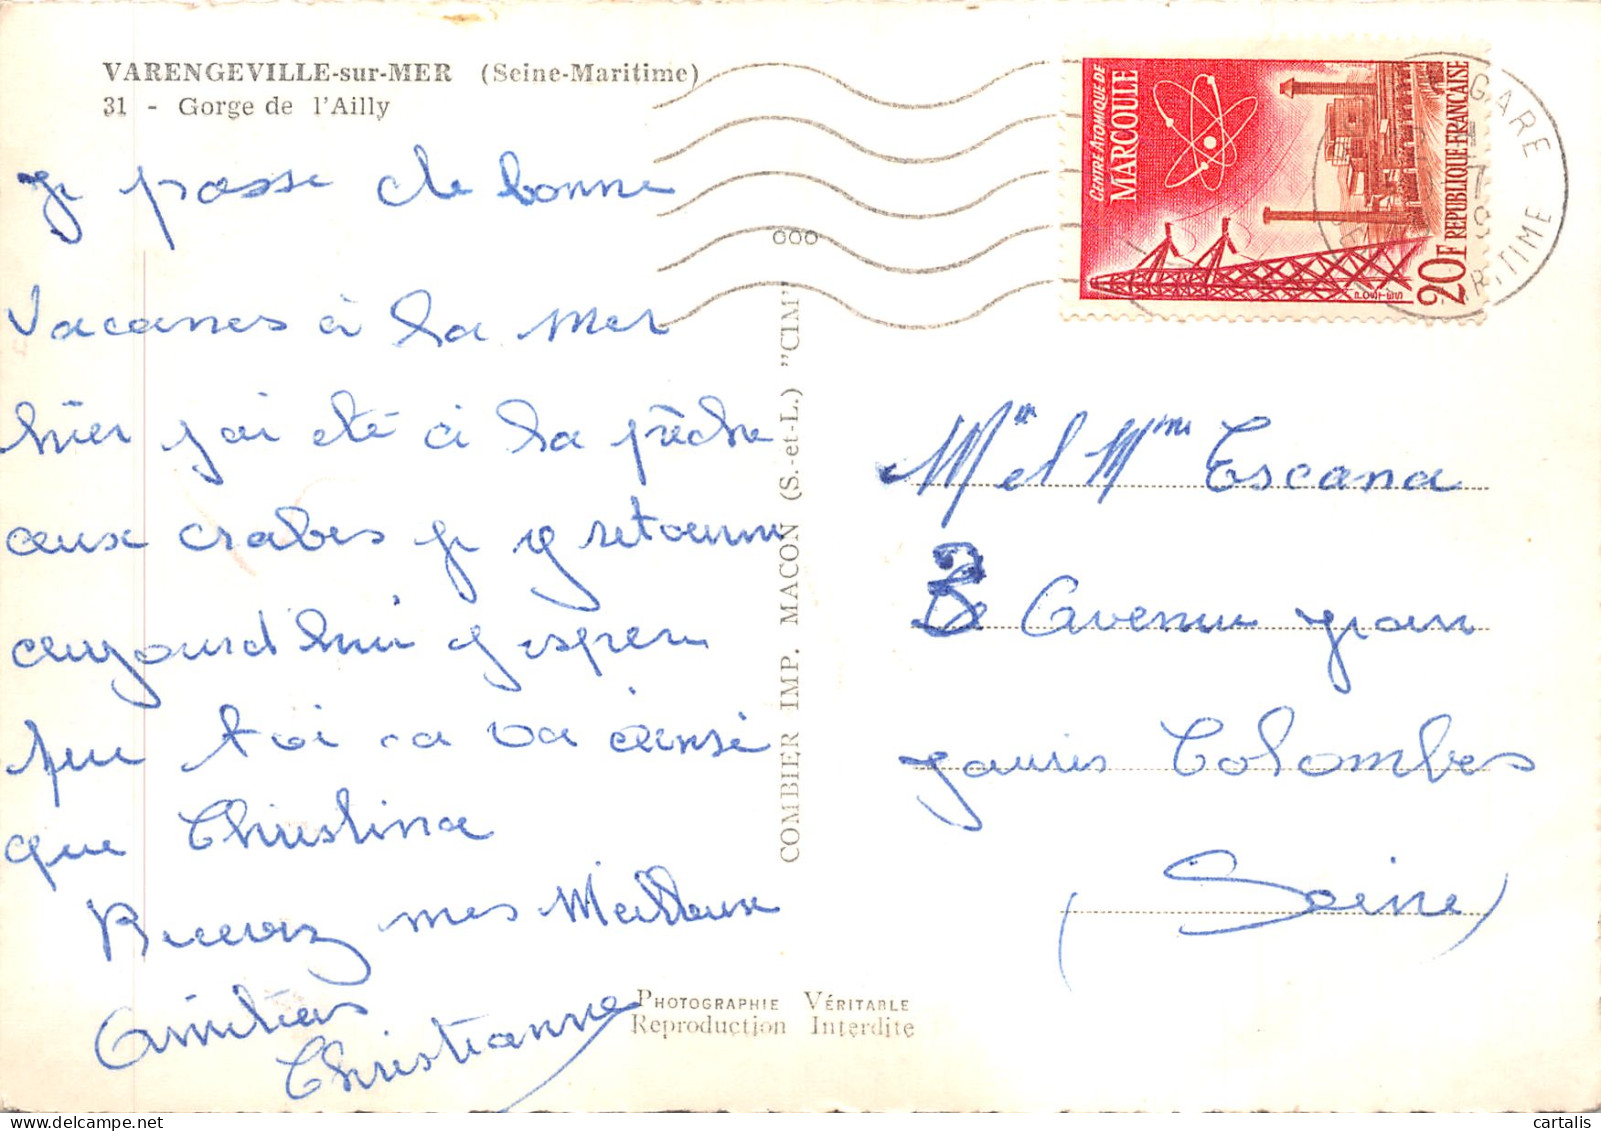 VARENGEVILLE-sur-MER (Seine-Maritime)
31 - Gorge de l'Ailly
Je passe de bonne
Vacanes à la mer
hier j'ai été à la pêche
aux crabes je y retourne
aujourd hui j esper
que toi ca va ainsi
que Christina
Recevez mes Meilleux
Amitiées
Christianne
COMBIER IMP. MACON (S.-et-L.) "CIM"
PHOTOGRAPHIE VÉRITABLE
Reproduction Interdite
CENTRE ATOMIQUE DE
MARCOULE
20F REPUBLIQUE FRANÇAISE
GARE
MARITIME
Mr et Mme Escana
Avenue jean
jaures Colombes
(Seine)
cartalis